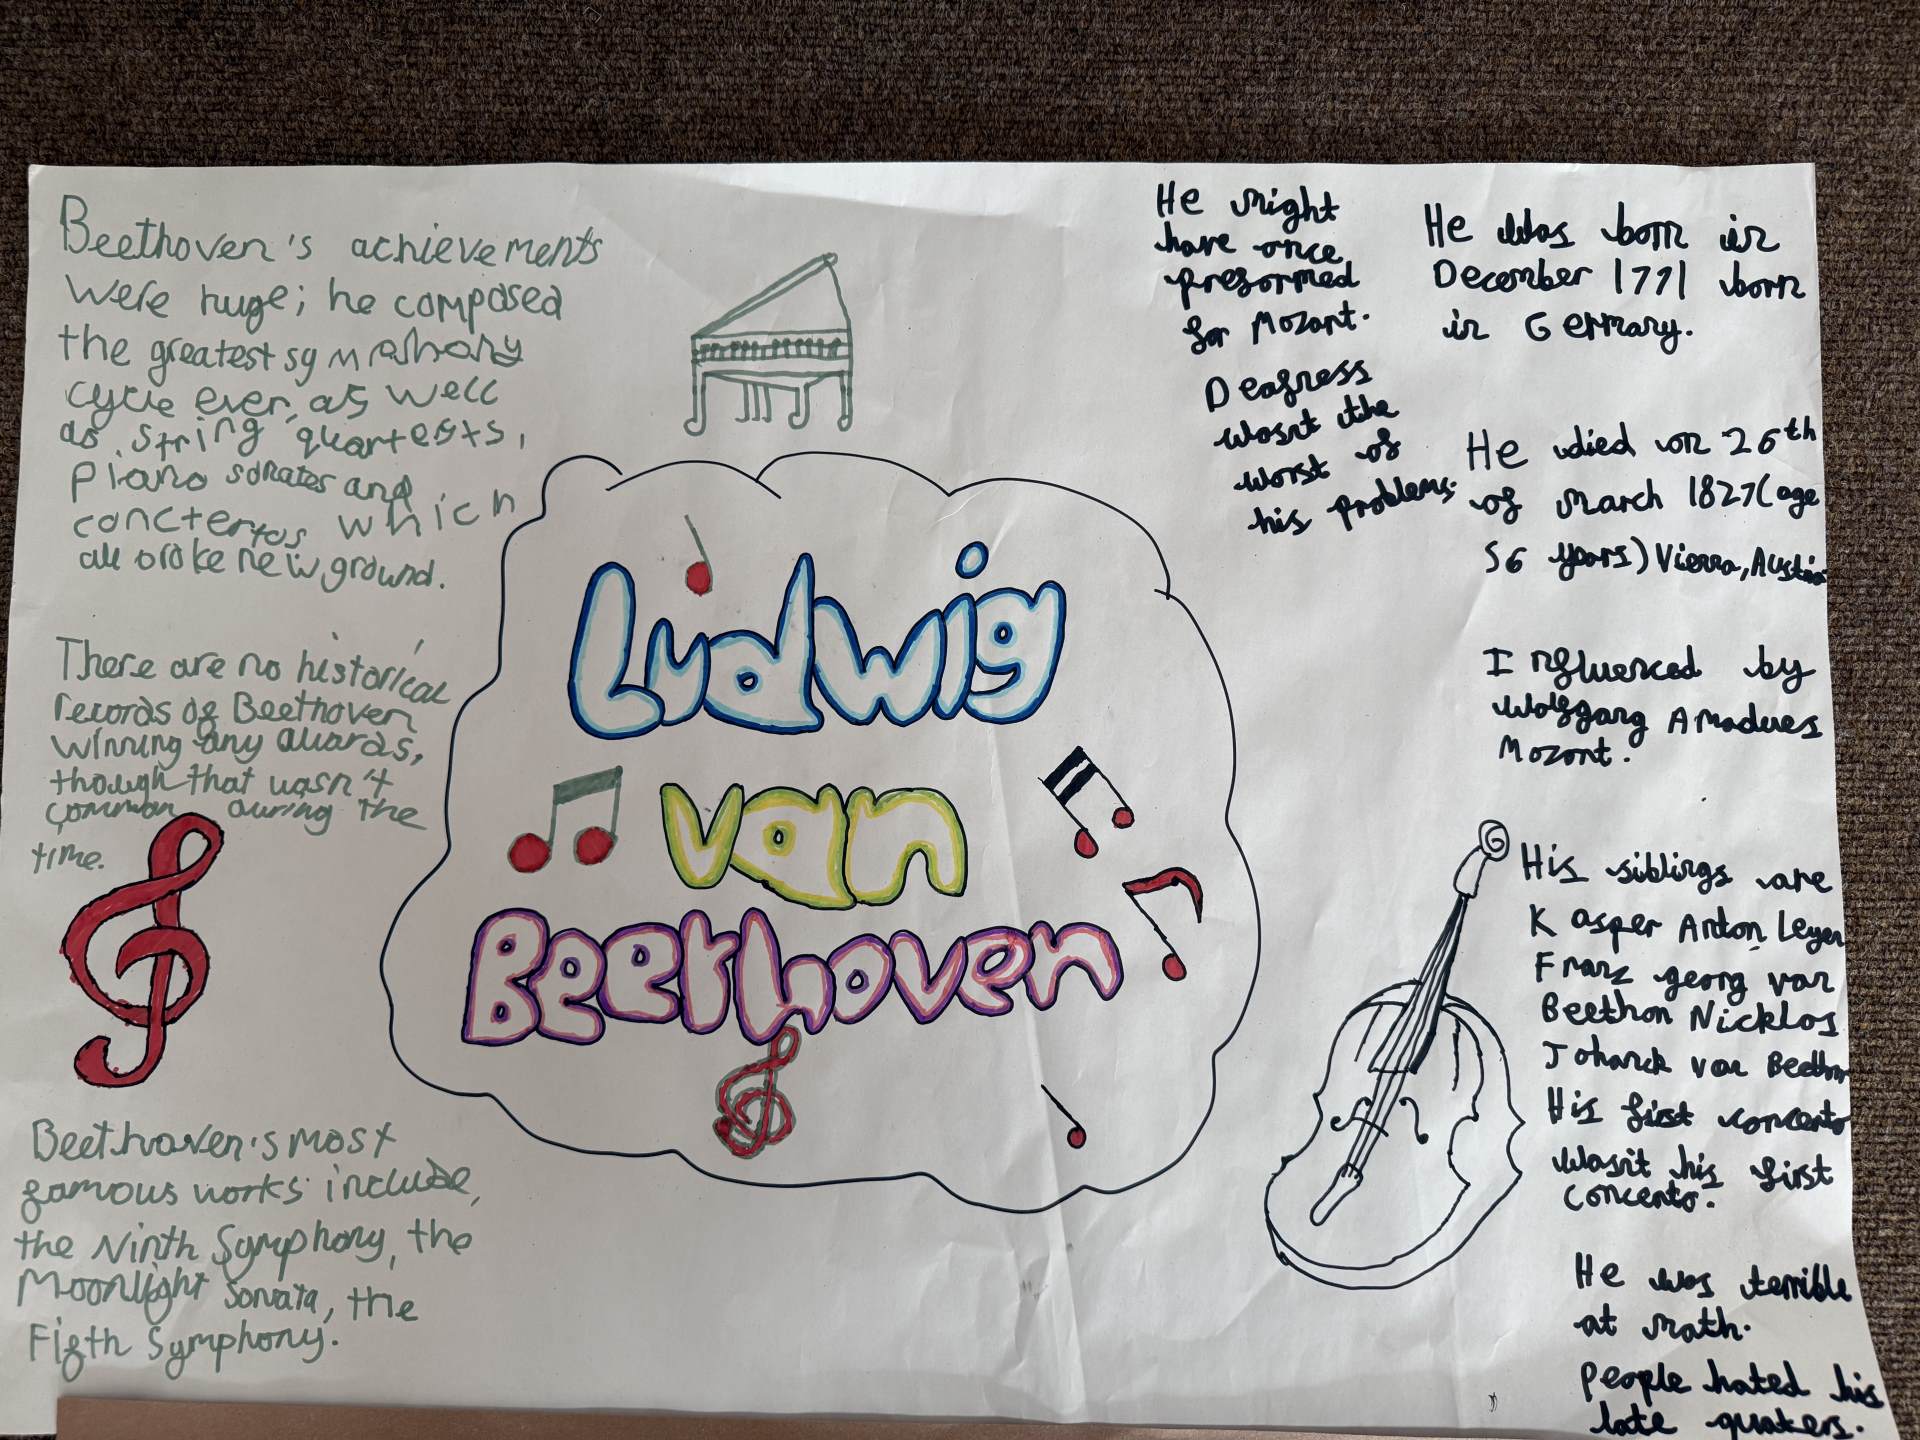 Beethoven's achievements
were huge; he composed
the greatest symphony
cycle ever, as well
as string quartests,
Piano sonates and
conctertos which
all broke new ground.
There are no historical
records of Beethoven
winning any awards,
though that wasn't
common during the
time.
Beethoven's most
famous works include,
the Ninth Symphony, the
Moonlight Sonata, the
Fifth Symphony.
Ludwig
van
Beethoven
He might
have once
preformed
for Mozart.
Deafness
wasnt the
worst of
his problems.
He was born in
December 1771 born
in Germany.
He died on 26th
of March 1827(age
56 years) Vienna, Austria
Influenced by
Wolfgang Amadues
Mozart.
His siblings are
Kasper Anton
Franz georg van
Beethon Nicklos
van
His first concerto
Wasn't his first
concerto.
He was terrible
at math.
People hated his
late